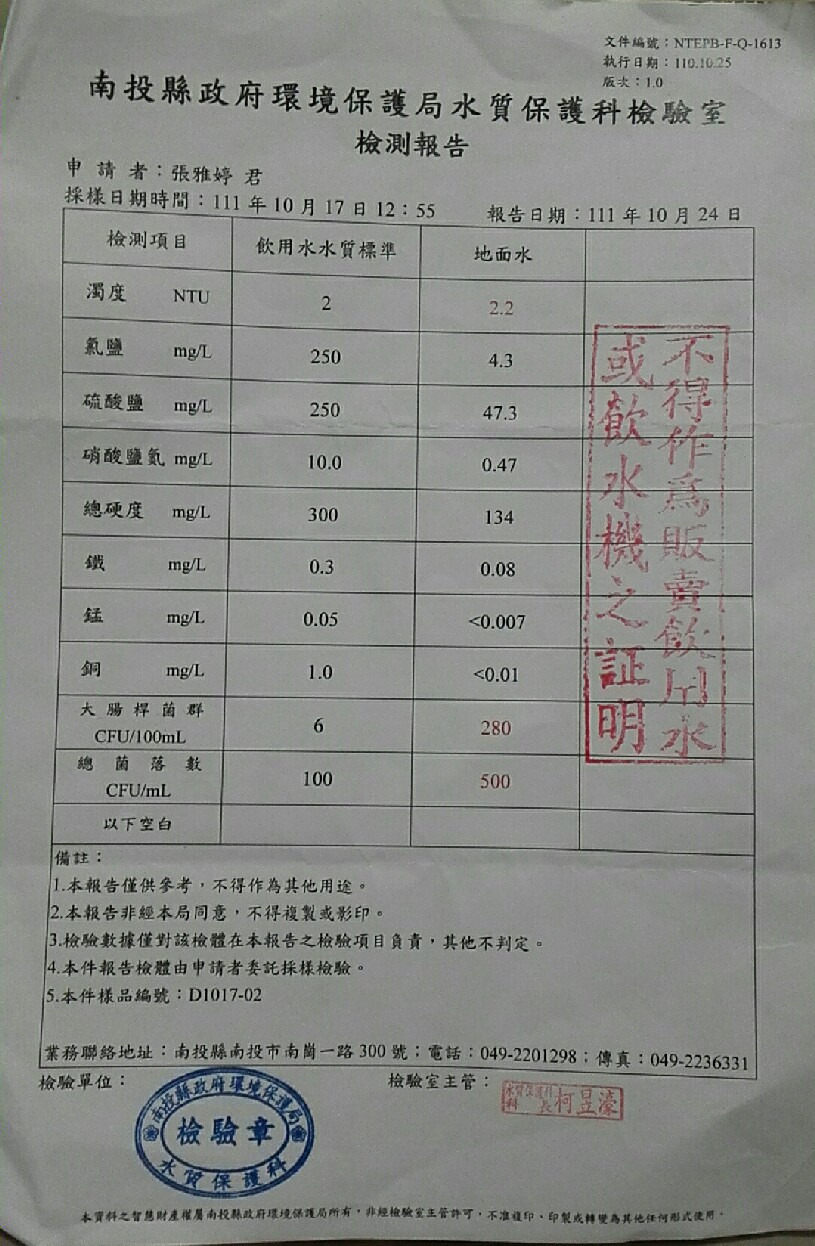 文件編號：NTEPB-F-Q-1613
執行日期：110.10.25
版次：1.0
南投縣政府環境保護局水質保護科檢驗室
檢測報告
申請者：張雅婷 君
採樣日期時間：111年10月17日12：55 報告日期：111年10月24日
檢測項目 飲用水水質標準 地面水
濁度 NTU 2 2.2
氯鹽 mg/L 250 4.3
硫酸鹽 mg/L 250 47.3
硝酸鹽氮 mg/L 10.0 0.47
總硬度 mg/L 300 134
鐵 mg/L 0.3 0.08
錳 mg/L 0.05 <0.007
銅 mg/L 1.0 <0.01
大腸桿菌群
CFU/100mL 6 280
總菌落數
CFU/mL 100 500
以下空白
不得作為販賣飲用水
或飲水機之証明
備註：
1.本報告僅供參考，不得作為其他用途。
2.本報告非經本局同意，不得複製或影印。
3.檢驗數據僅對該檢體在本報告之檢驗項目負責，其他不判定。
4.本件報告檢體由申請者委託採樣檢驗。
5.本件樣品編號：D1017-02
業務聯絡地址：南投縣南投市南崗一路300號；電話：049-2201298；傳真：049-2236331
檢驗單位： 檢驗室主管：
南投縣政府環境保護局
檢驗章
水質保護科
水質保護科
科長柯昱濠
本資料之智慧財產權屬南投縣政府環境保護局所有，非經檢驗室主管許可，不准複印、印製或轉變為其他任何形式使用。